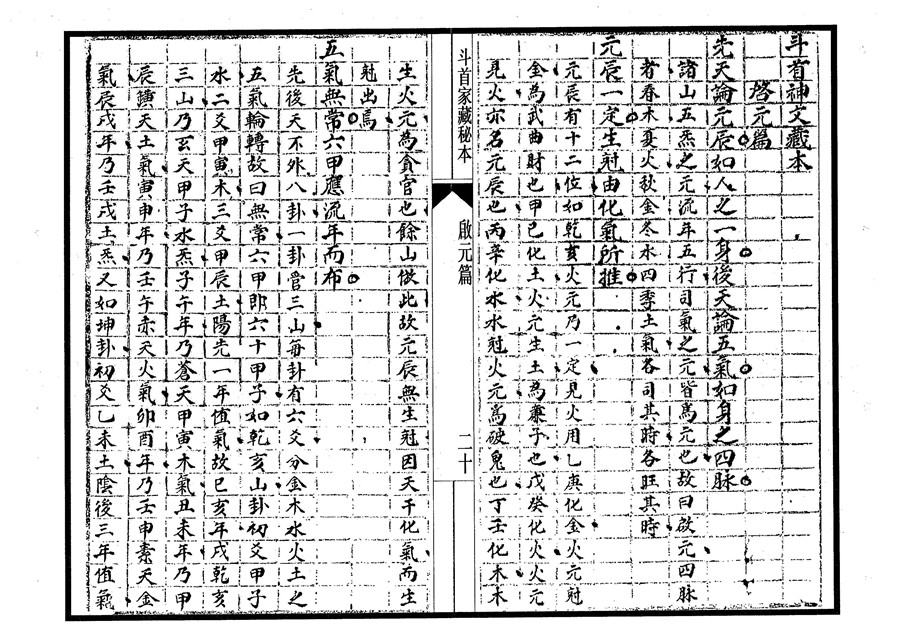 斗首神文藏本
啓元篇
先天論元辰如人之一身後天論五氣如身之四脉
諸山五炁之元流年五行司氣之元皆爲元也故曰啟元四脉
者春木夏火秋金冬水四季土氣各司其時各旺其時
元辰一定生尅由化氣所推
元辰有十二位如乾亥火元乃一定見火用乙庚化金火元尅
金為武曲財也甲己化土火元生土為廉子也戊癸化火火元
見火亦名元辰也丙辛化水水尅火元爲破鬼也丁壬化木木
斗首家藏秘本
啟元篇
二十
生火元為貪官也餘山倣此故元辰無生尅因天干化氣而生
尅出焉
五氣無常六甲應流年而布
先後天不外八卦一卦管三山每卦有六爻分金木水火土之
五氣輪轉故曰無常六甲即六十甲子如乾亥山卦初爻甲子
水二爻甲寅木三爻甲辰土陽先一年值氣故巳亥年戌乾亥
三山乃玄天甲子水炁子午年乃蒼天甲寅木氣丑未年乃甲
辰黅天土氣寅申年乃壬午赤天火氣卯酉年乃壬申素天金
氣辰戌年乃壬戌土炁又如坤卦初爻乙未土陰後三年值氣